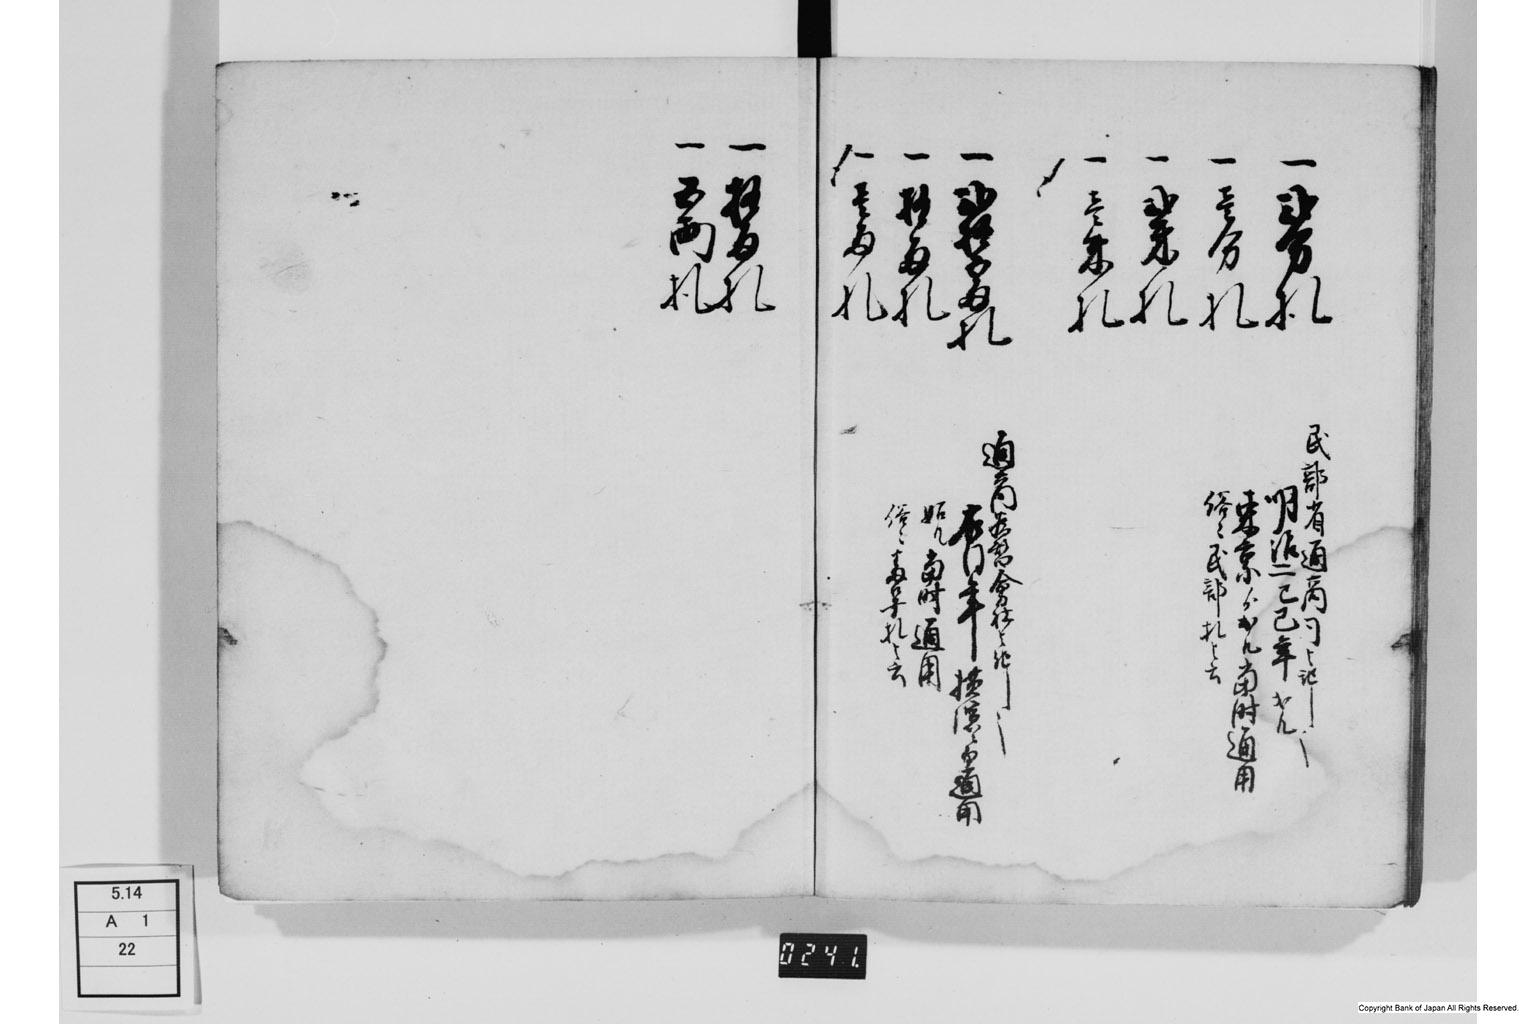 一 弐分札
一 壱分札
一 弐朱札
一 壱朱札
民部省通商司と記し
明治二己巳年
東京 当時通用
俗ニ民部札と云
一 弐拾五両札
一 拾両札
一 壱両札
通商為替会社と記し
年 横浜ニ而通用
当時通用
俗ニ 札と云
一 拾両札
一 五両札
5.14
A 1
22
0241.
Copyright Bank of Japan All Rights Reserved.